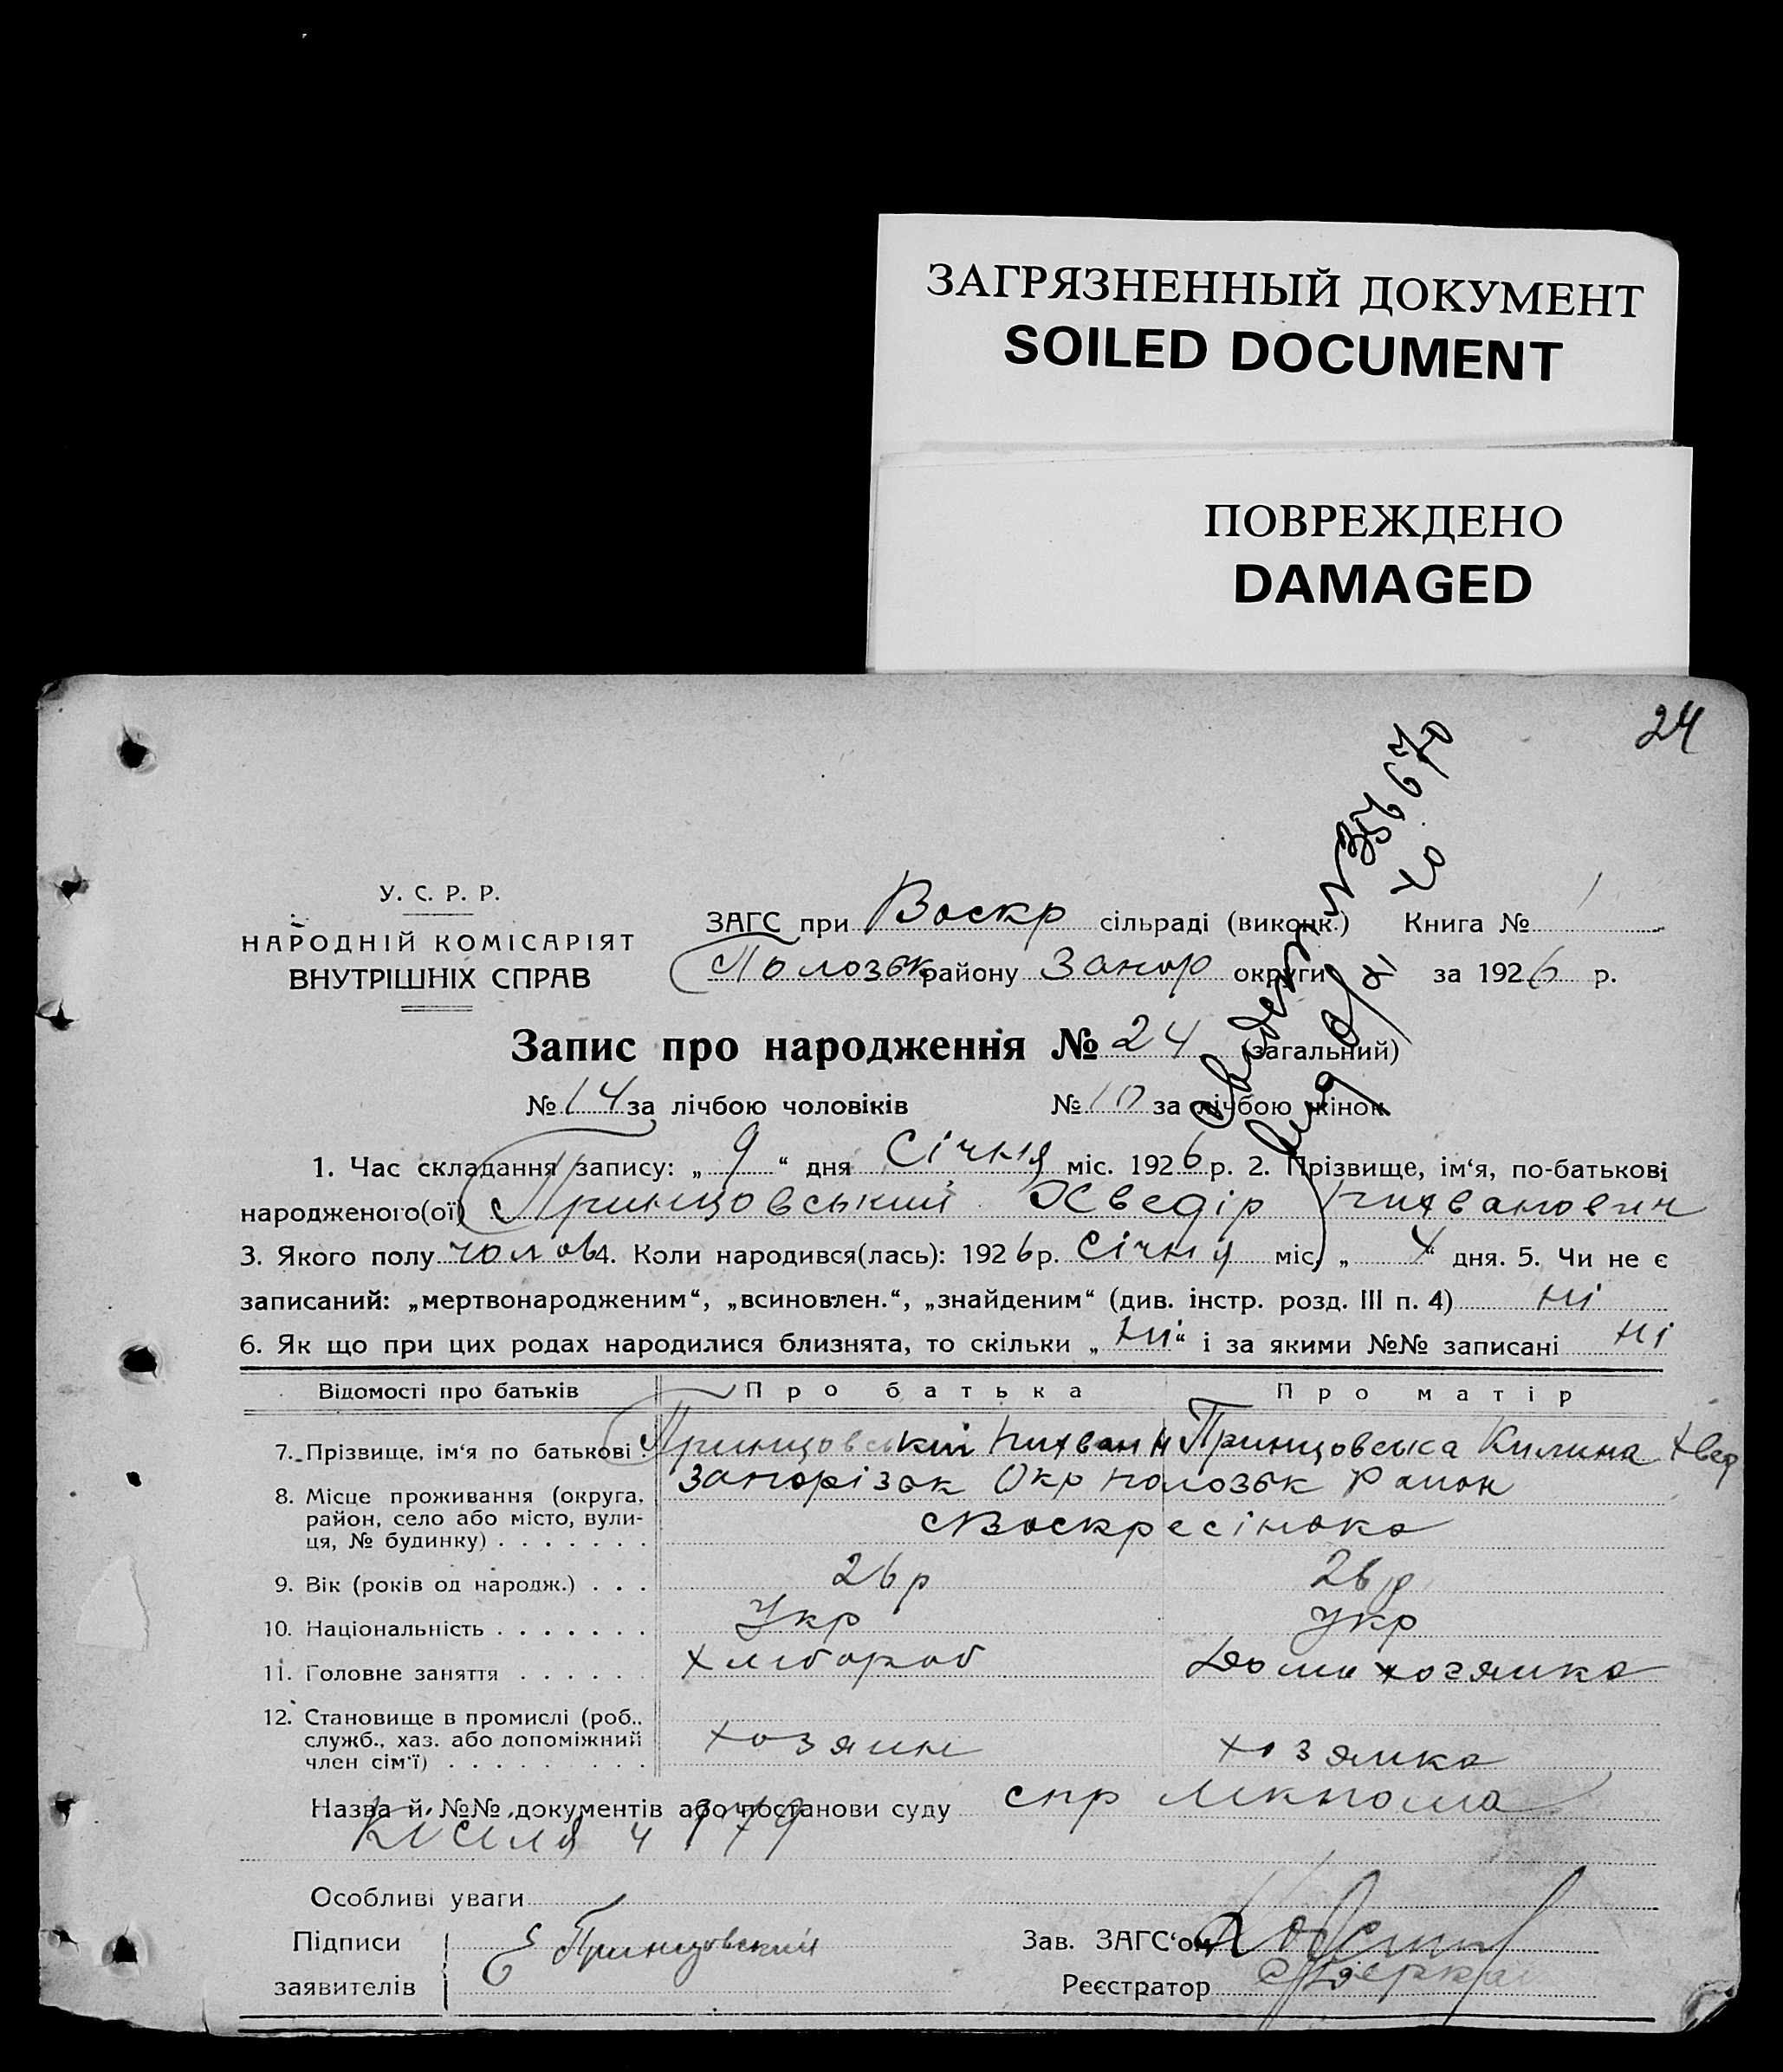 ЗАГРЯЗНЕННЫЙ ДОКУМЕНТ
SOILED DOCUMENT
ПОВРЕЖДЕНО
DAMAGED
24
У. С. Р. Р.
НАРОДНІЙ КОМІСАРІЯТ
ВНУТРІШНІХ СПРАВ
ЗАГС при Воскр сільраді (виконк.) Книга № 1
Полозьк району Запор округи за 1926 р.
Запис про народження № 24 (загальний)
№ 14 за лічбою чоловіків № 10 за лічбою жінок
1. Час складання запису: „ 9 “ дня Січня міс. 1926 р. 2. Прізвище, ім‘я, по-батькові
народженого(ої) Принцовський Хведір
3. Якого полу чолов 4. Коли народився(лась): 1926 р. Січня міс. „ 4 “ дня. 5. Чи не є
записаний: „мертвонародженим“, „всиновлен.“, „знайденим“ (див. інстр. розд. III п. 4) ні
6. Як що при цих родах народилися близнята, то скільки „ ні “ і за якими №№ записані ні
Відомості про батьків Про батька Про матір
7. Прізвище, ім‘я по батькові Принцовський Принцовська Килина Хвед
8. Місце проживання (округа, район, село або місто, вулиця, № будинку) Запорізьк Окр Полозьк Район
Воскресінока
9. Вік (років од народж.) 26 р 26 р
10. Національність Укр Укр
11. Головне заняття Хлібороб Домохозяика
12. Становище в промислі (роб., служб., хаз. або допоміжний член сім‘ї) хозяин хозяика
Назва й №№ документів або постанови суду спр
Особливі уваги
Підписи заявителів Принцовский
Зав. ЗАГС‘ом
Реєстратор